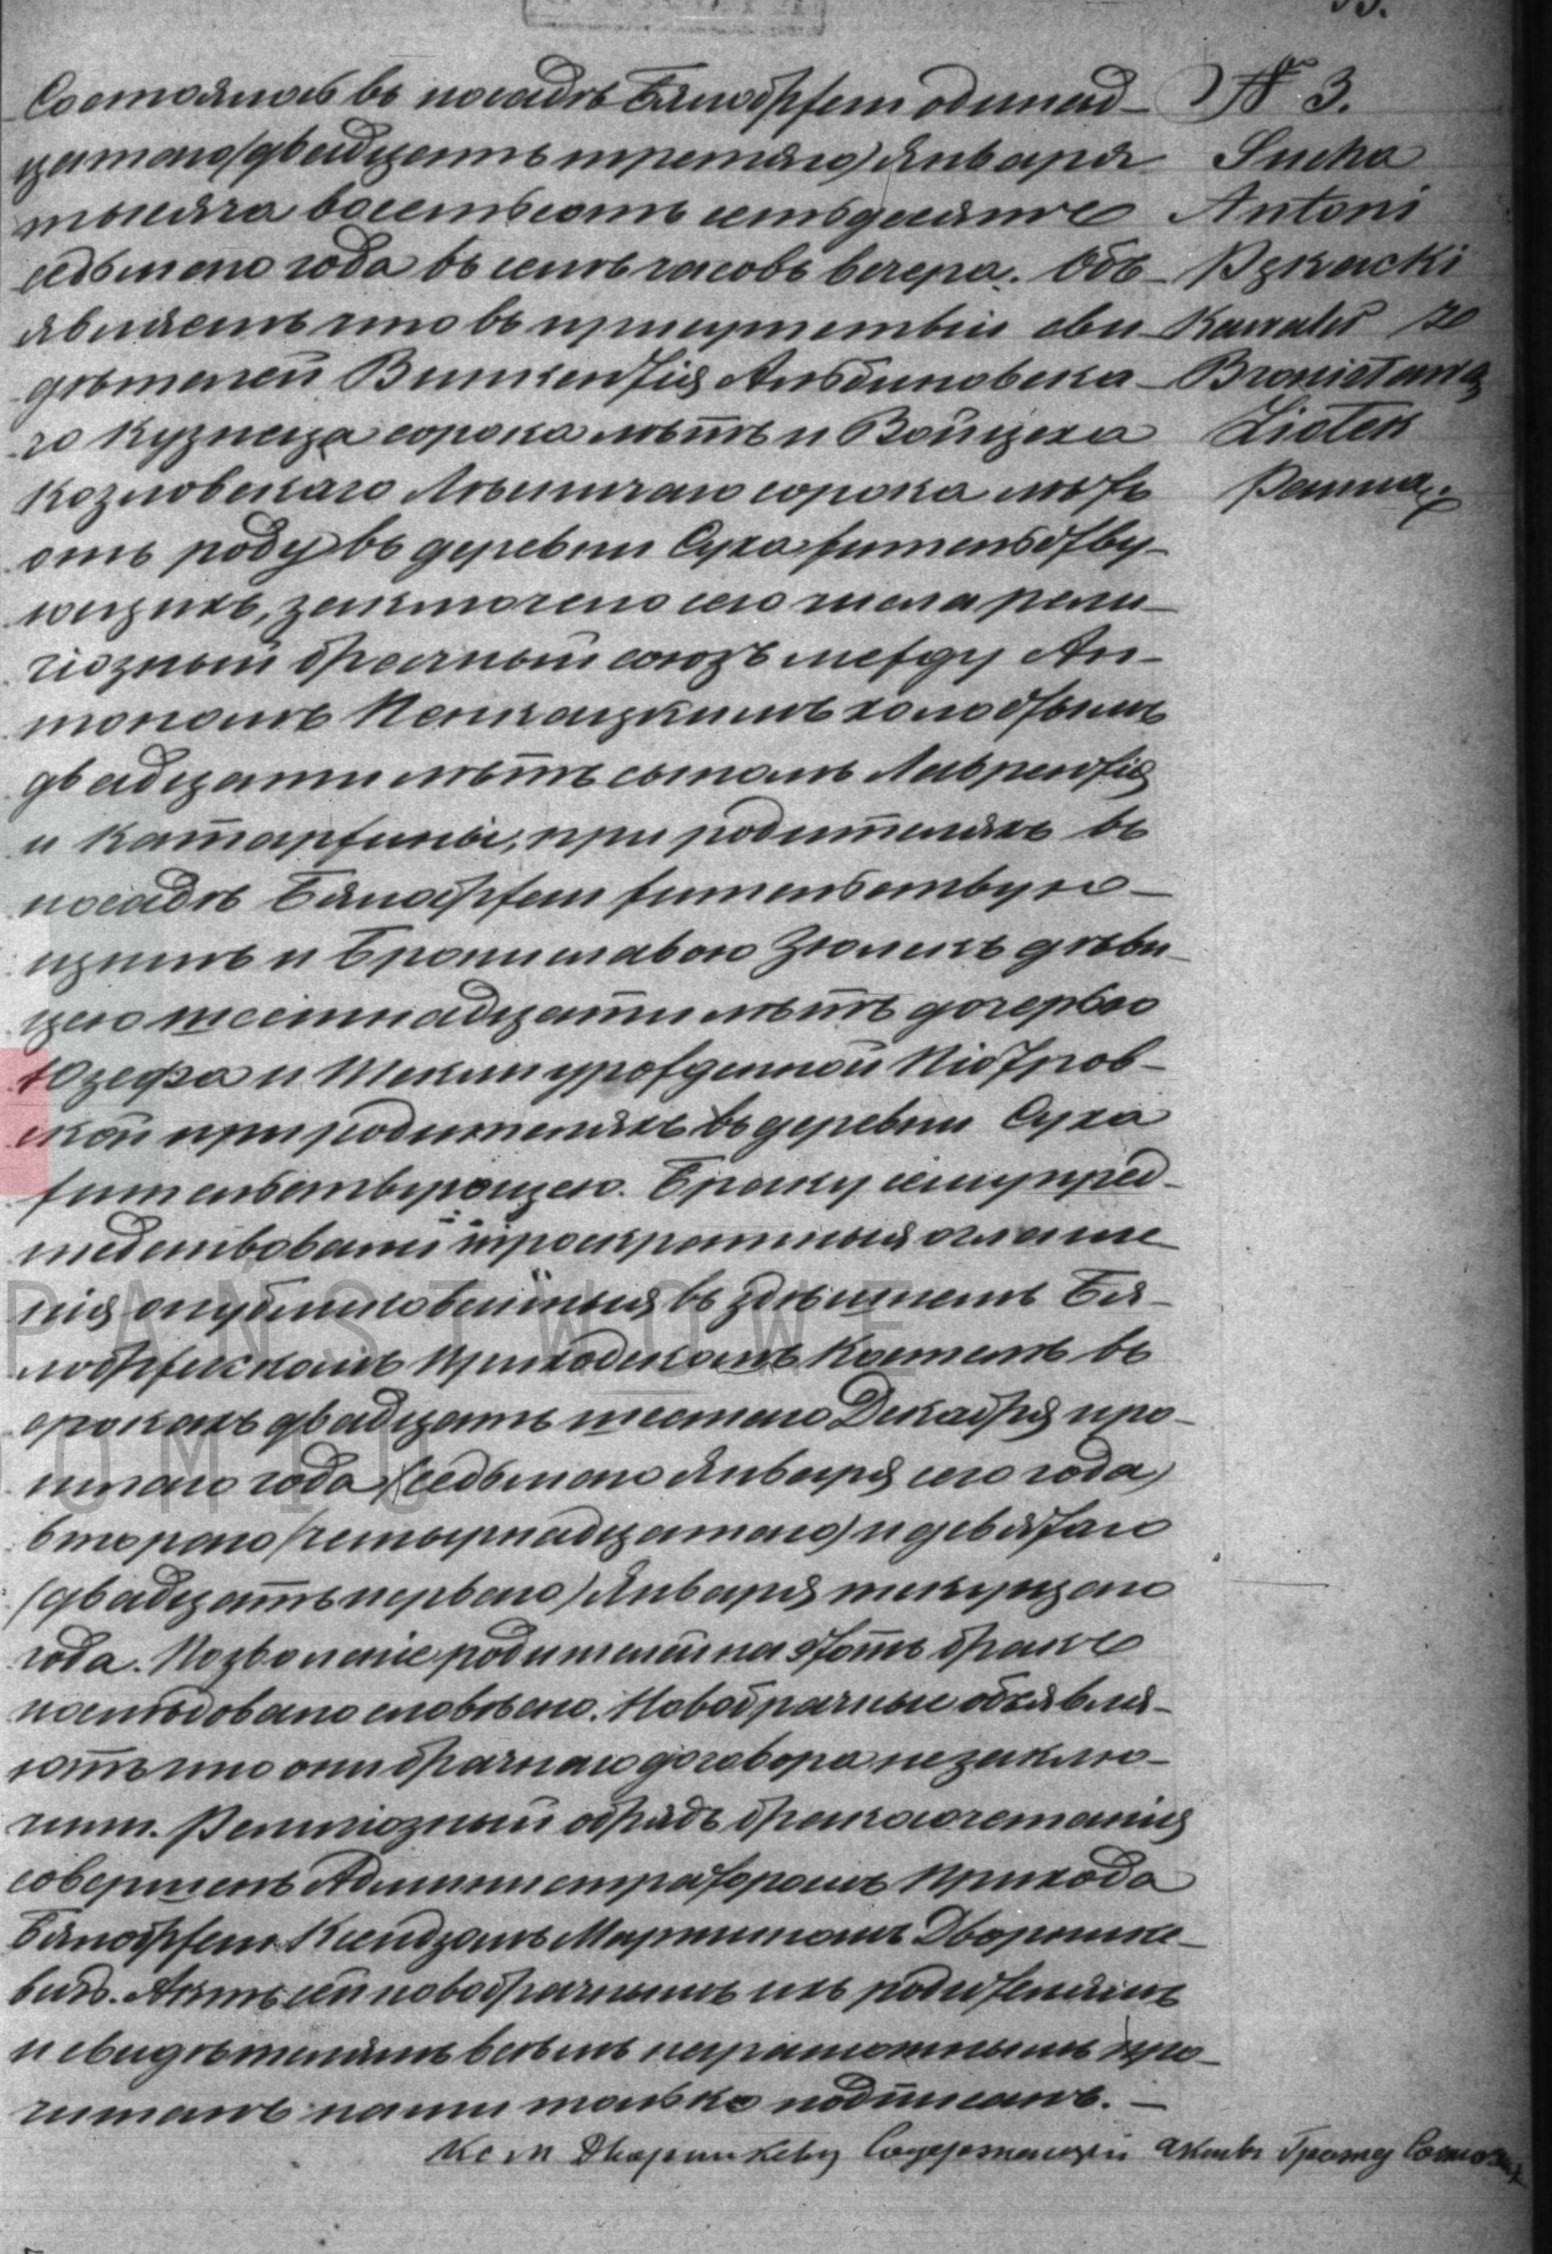 Состоялось въ посадѣ Бялобржеги одинад-
цатого (двадцать третяго) Января
тысяча восемьсотъ семьдесятъ
седьмого года въ семь часовъ вечера. Объ-
являемъ что въ присутствіи сви-
дѣтелей Викентія Альбиновска-
го Кузнеца сорока лѣтъ и Войцеха
Козловскаго Лѣсничаго сорока лѣтъ
отъ роду въ деревни Суха жительству-
ющихъ, заключено сего числа рели-
гіозный брачный союзъ между Ан-
тономъ Пенкацкимъ холостымъ
двадцати лѣтъ сыномъ Лаврентія
и Катаржины, при родителяхъ въ
посадѣ Бялобржеги жительствую-
щимъ и Брониславою Зюлекъ дѣви-
цею шестнадцати лѣтъ дочерью
Юзефа и Текли урожденной Піотров-
ской при родителяхъ въ деревни Суха
жительствующею. Браку сему пред-
шедствовали троекратныя оглаше
нія опубликованныя въ здѣшнемъ Бя-
лобржескомъ Приходскомъ Костелѣ въ
срокахъ двадцать шестаго Декабря про-
шлаго года (седьмаго Января сего года)
втораго (четырнадцатаго) и девятаго
(двадцать перваго) Января текущаго
года. Позволеніе родителей на этотъ бракъ
послѣдовало словѣсно. Новобрачные объявля-
ютъ что они брачнаго договора не заклю-
чили. Религіозный обрядъ бракосочетанія
совершенъ Администраторомъ Прихода
Бялобржеги Ксендзомъ Мартиномъ Дворжике-
вичъ. Актъ сей новобрачнымъ ихъ родителямъ
и свидѣтелямъ всѣмъ неграмотнымъ про-
читанъ нами только подписанъ. —
Кс М Дворжикевичъ Содержающій Актовъ Гражд Состоян
№ 3.
Sucha
Antoni
Pękacki
Kawaler ze
Bronisławą
Ziołek
Panną.
PAŃSTWOWE
OMIU